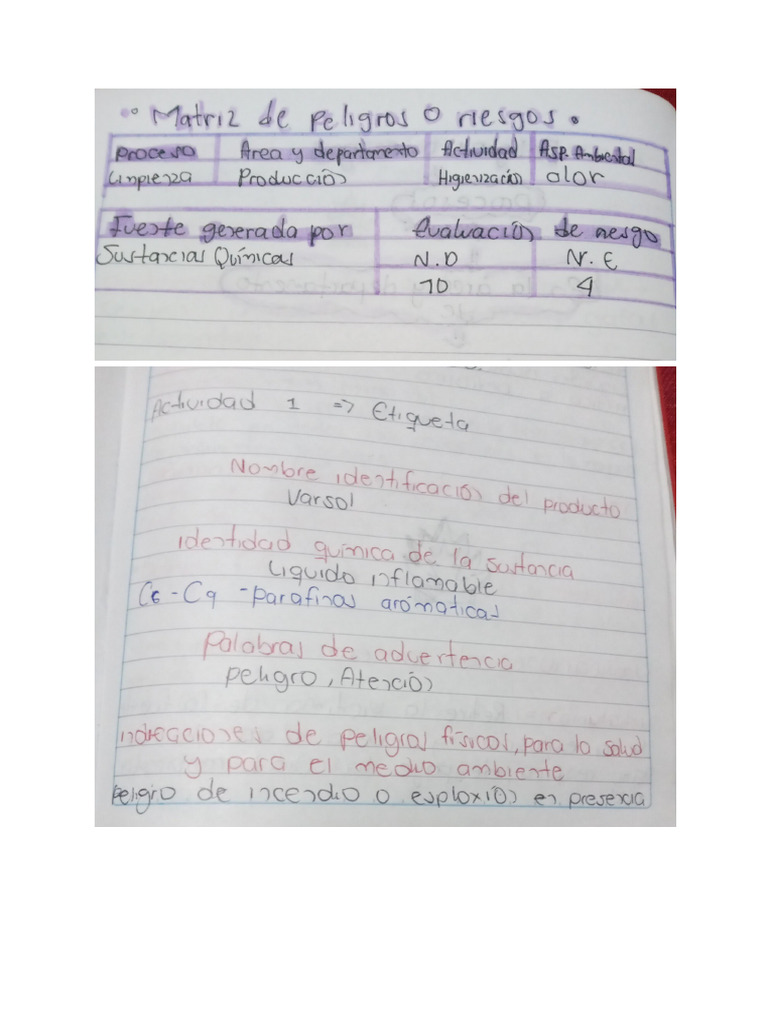 Matriz de peligros o riesgos.
proceso Area y departamento Actividad Asp. Ambiental
Limpienza Producción Higienización olor
Fuente generada por evaluación de riesgo
Sustancias Químicas N.D N.E
10 4
Actividad 1 => Etiqueta
Nombre identificación del producto
Varsol
identidad química de la sustancia
Liquido inflamable
C6 - C9 - parafinas aromáticas
Palabras de advertencia
peligro, Atención
indicaciones de peligros físicos, para la salud
y para el medio ambiente
peligro de incendio o esploxión en presencia